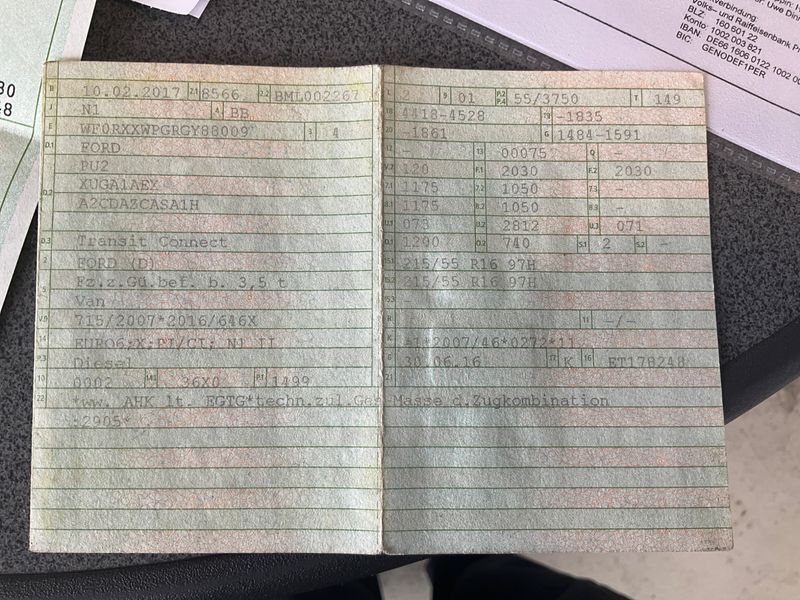 pin: I
er: Uwe Din
verbindung:
Volks- und Raiffeisenbank Pr
BLZ: 160 601 22
Konto: 1002 003 821
IBAN: DE66 1606 0122 1002 00
BIC: GENODEF1PER
30
48
B 10.02.2017 2.1 8566 2.2 BML002267
J N1 4 BB
E WF0RXXWPGRGY88009 3 4
D.1 FORD
PU2
D.2 XUGA1AEX
A2CDAZCASA1H
D.3 Transit Connect
2 FORD (D)
Fz.z.Gü.bef. b. 3,5 t
5 Van
V.9 715/2007*2016/646X
14 EURO6;X;PI/CI; N1 II
P.3 Diesel
10 0002 14.1 36X0 P.1 1499
22 *ww. AHK lt. EGTG*techn.zul.Ges.Masse d.Zugkombination
:2905*
L 2 9 01 P.2 P.4 55/3750 T 149
18 4418-4528 19 -1835
20 -1861 G 1484-1591
12 - 13 00075 Q -
V.7 120 F.1 2030 F.2 2030
7.1 1175 7.2 1050 7.3 -
8.1 1175 8.2 1050 8.3 -
U.1 073 U.2 2812 U.3 071
O.1 1200 O.2 740 S.1 2 S.2 -
15.1 215/55 R16 97H
15.2 215/55 R16 97H
15.3 -
R 11 -/-
K e1*2007/46*0272*11
6 30.06.16 17 K 16 ET178248
21